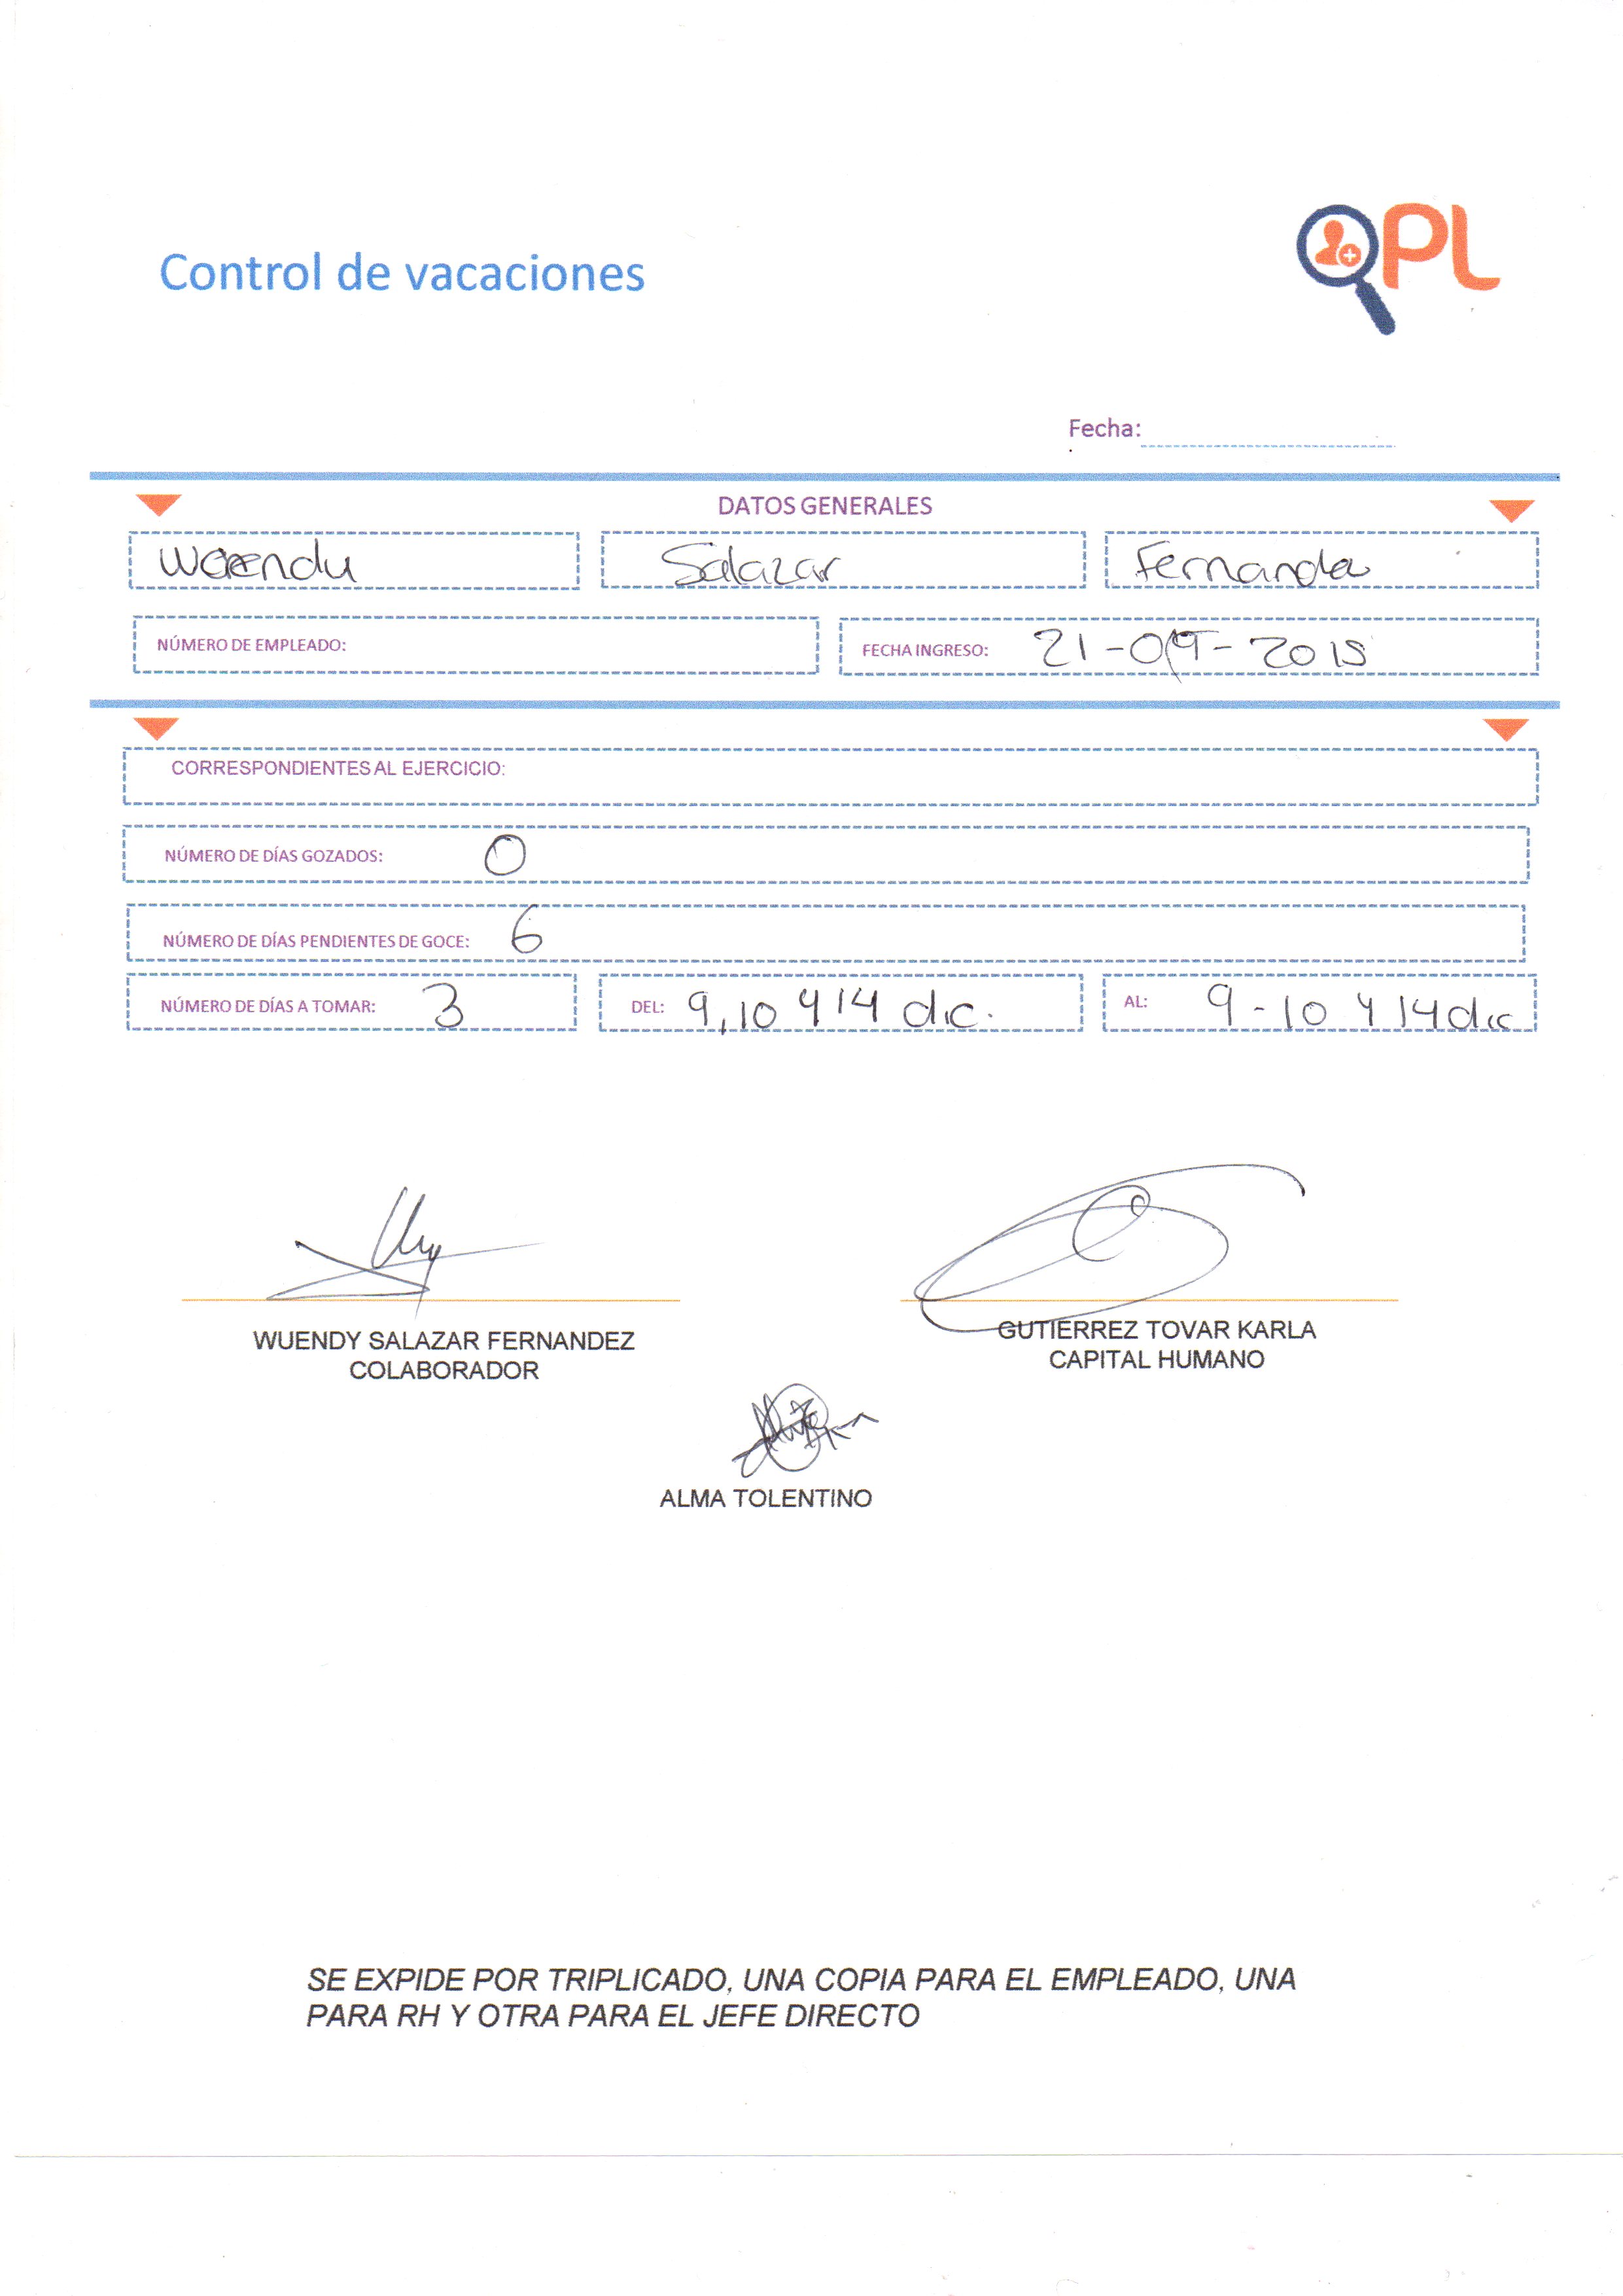 QPL
Control de vacaciones
Fecha:
DATOS GENERALES
Salazar Fernanda
NÚMERO DE EMPLEADO: FECHA INGRESO: 21-OCT-2015
CORRESPONDIENTES AL EJERCICIO:
NÚMERO DE DÍAS GOZADOS: 0
NÚMERO DE DÍAS PENDIENTES DE GOCE: 6
NÚMERO DE DÍAS A TOMAR: 3 DEL: 9,10 y 14 dic. AL: 9-10 y 14 dic
WUENDY SALAZAR FERNANDEZ GUTIERREZ TOVAR KARLA
COLABORADOR CAPITAL HUMANO
ALMA TOLENTINO
SE EXPIDE POR TRIPLICADO, UNA COPIA PARA EL EMPLEADO, UNA
PARA RH Y OTRA PARA EL JEFE DIRECTO